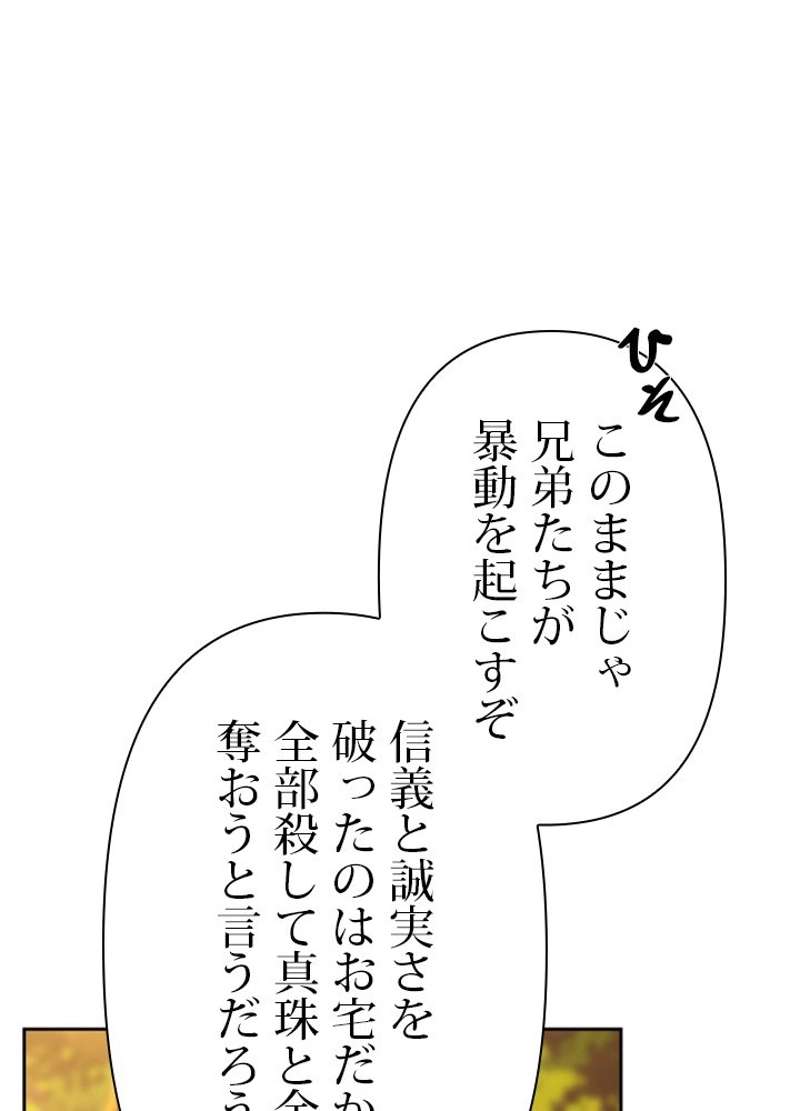 ひそ
このままじゃ
兄弟たちが
暴動を起こすぞ
信義と誠実さを
破ったのはお宅だか
全部殺して真珠と金
奪おうと言うだろう